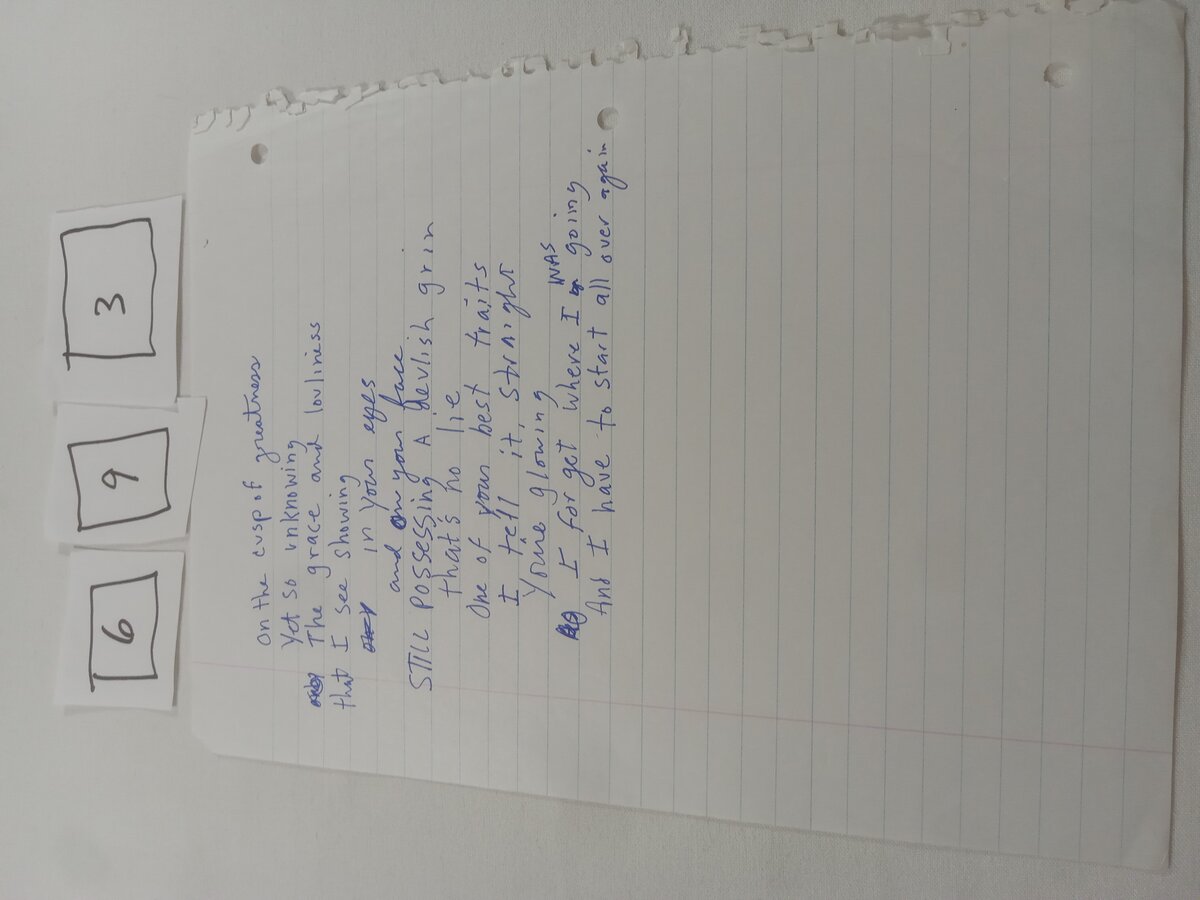 6 9 3
On the cusp of greatness
Yet so unknowing
The grace and lovliness
that I see showing
in your eyes
and on your face
STILL POSSESSING A devlish grin
that's no lie
One of your best traits
I tell it straight
You're glowing
I forget where I WAS going
And I have to start all over again